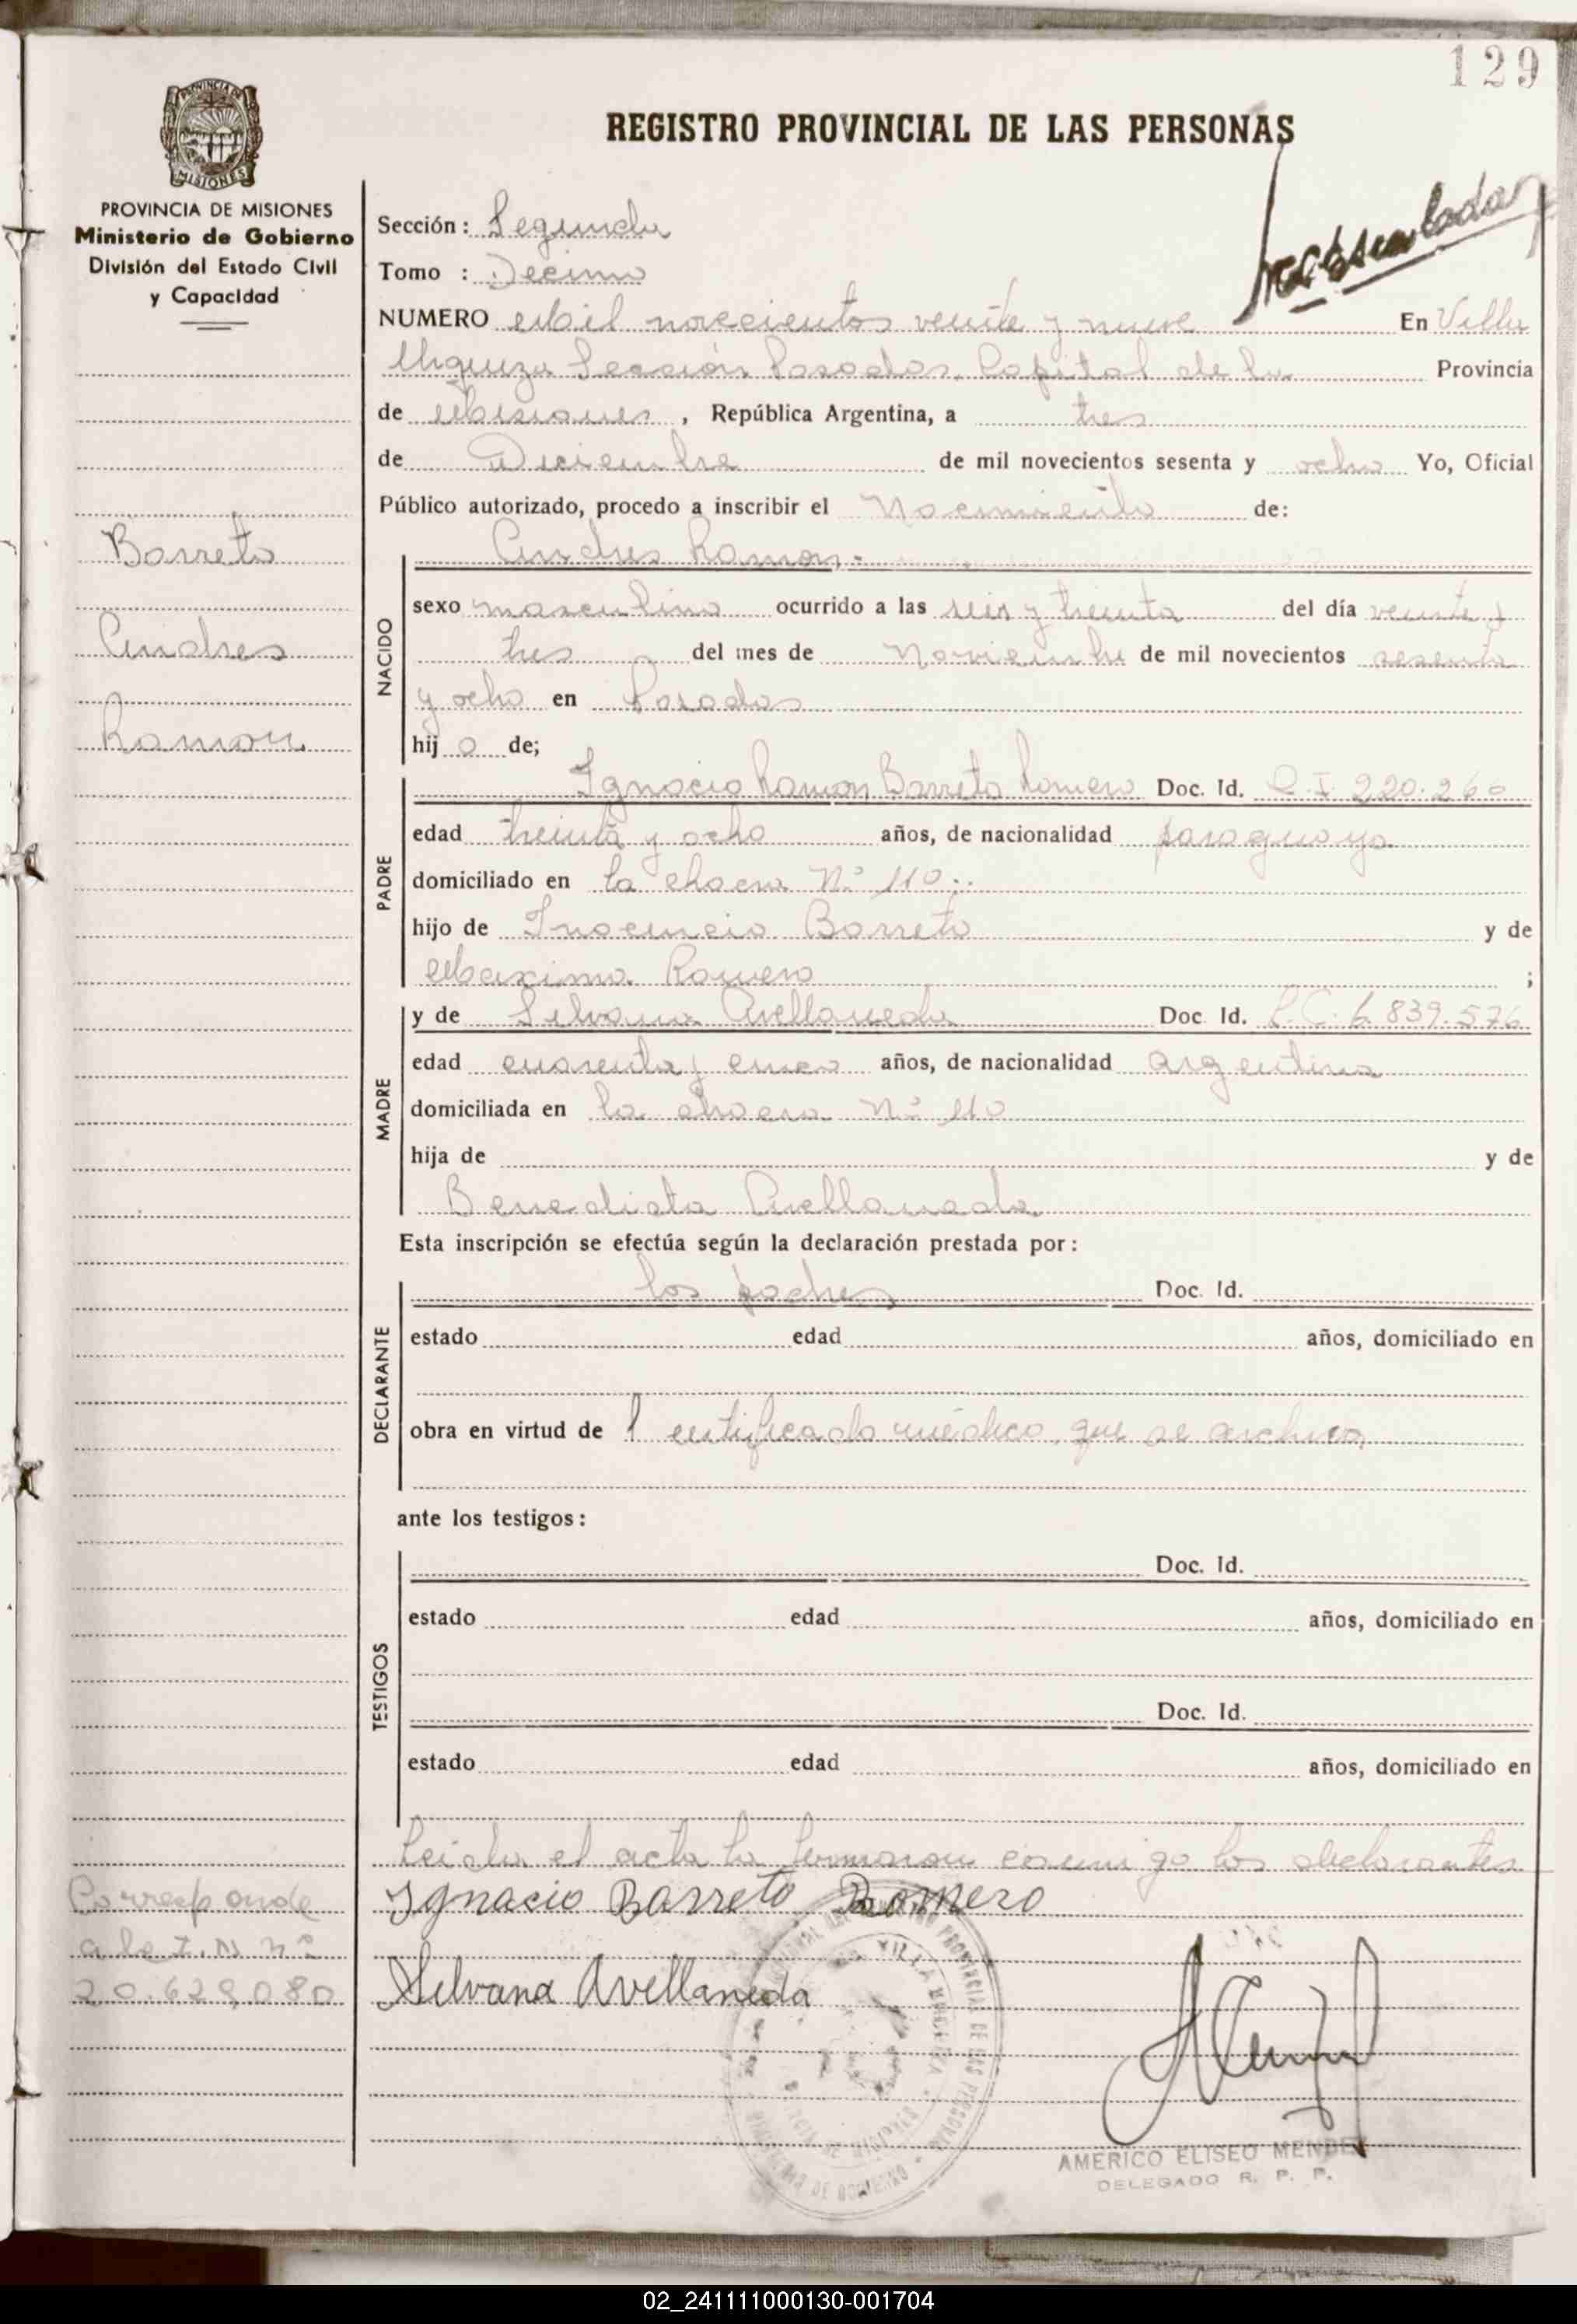 129
REGISTRO PROVINCIAL DE LAS PERSONAS
PROVINCIA DE MISIONES
Ministerio de Gobierno
División del Estado Civil
y Capacidad
Sección: Segunda
Tomo : Decimo
NUMERO Mil novecientos veinte y nueve En Villa
Urquiza Sección Posadas, Capital de la Provincia
de Misiones, República Argentina, a tres
de Diciembre de mil novecientos sesenta y ocho Yo, Oficial
Público autorizado, procedo a inscribir el Nacimiento de:
Barreto
Andres Ramon.-
sexo masculino ocurrido a las seis y treinta del día veinte y
Andres
tres del mes de Noviembre de mil novecientos sesenta
y ocho en Posadas
Ramon
hijo de;
NACIDO
Ignacio Ramon Barreto Romero Doc. Id. C.I 220.260
edad treinta y ocho años, de nacionalidad paraguaya
domiciliado en la chacra Nº 110..
hijo de Inocencio Barreto y de
Maxima Romero ;
PADRE
y de Silvana Avellaneda Doc. Id. L.C. 6.839.576
edad cuarenta y cinco años, de nacionalidad argentina
domiciliada en la chacra Nº 110
hija de y de
Benedicta Avellaneda
MADRE
Esta inscripción se efectúa según la declaración prestada por:
los padres Doc. Id.
estado edad años, domiciliado en
DECLARANTE
obra en virtud de 1 certificado médico, que se archiva
ante los testigos:
Doc. Id.
estado edad años, domiciliado en
TESTIGOS
Doc. Id.
estado edad años, domiciliado en
Leida el acta la firmaron conmigo los declarantes
Ignacio Barreto Romero
Corresponde
a la I.N nº
20.629.080
Silvana Avellaneda
AMERICO ELISEO MENDEZ
DELEGADO R. P. P.
02_241111000130-001704